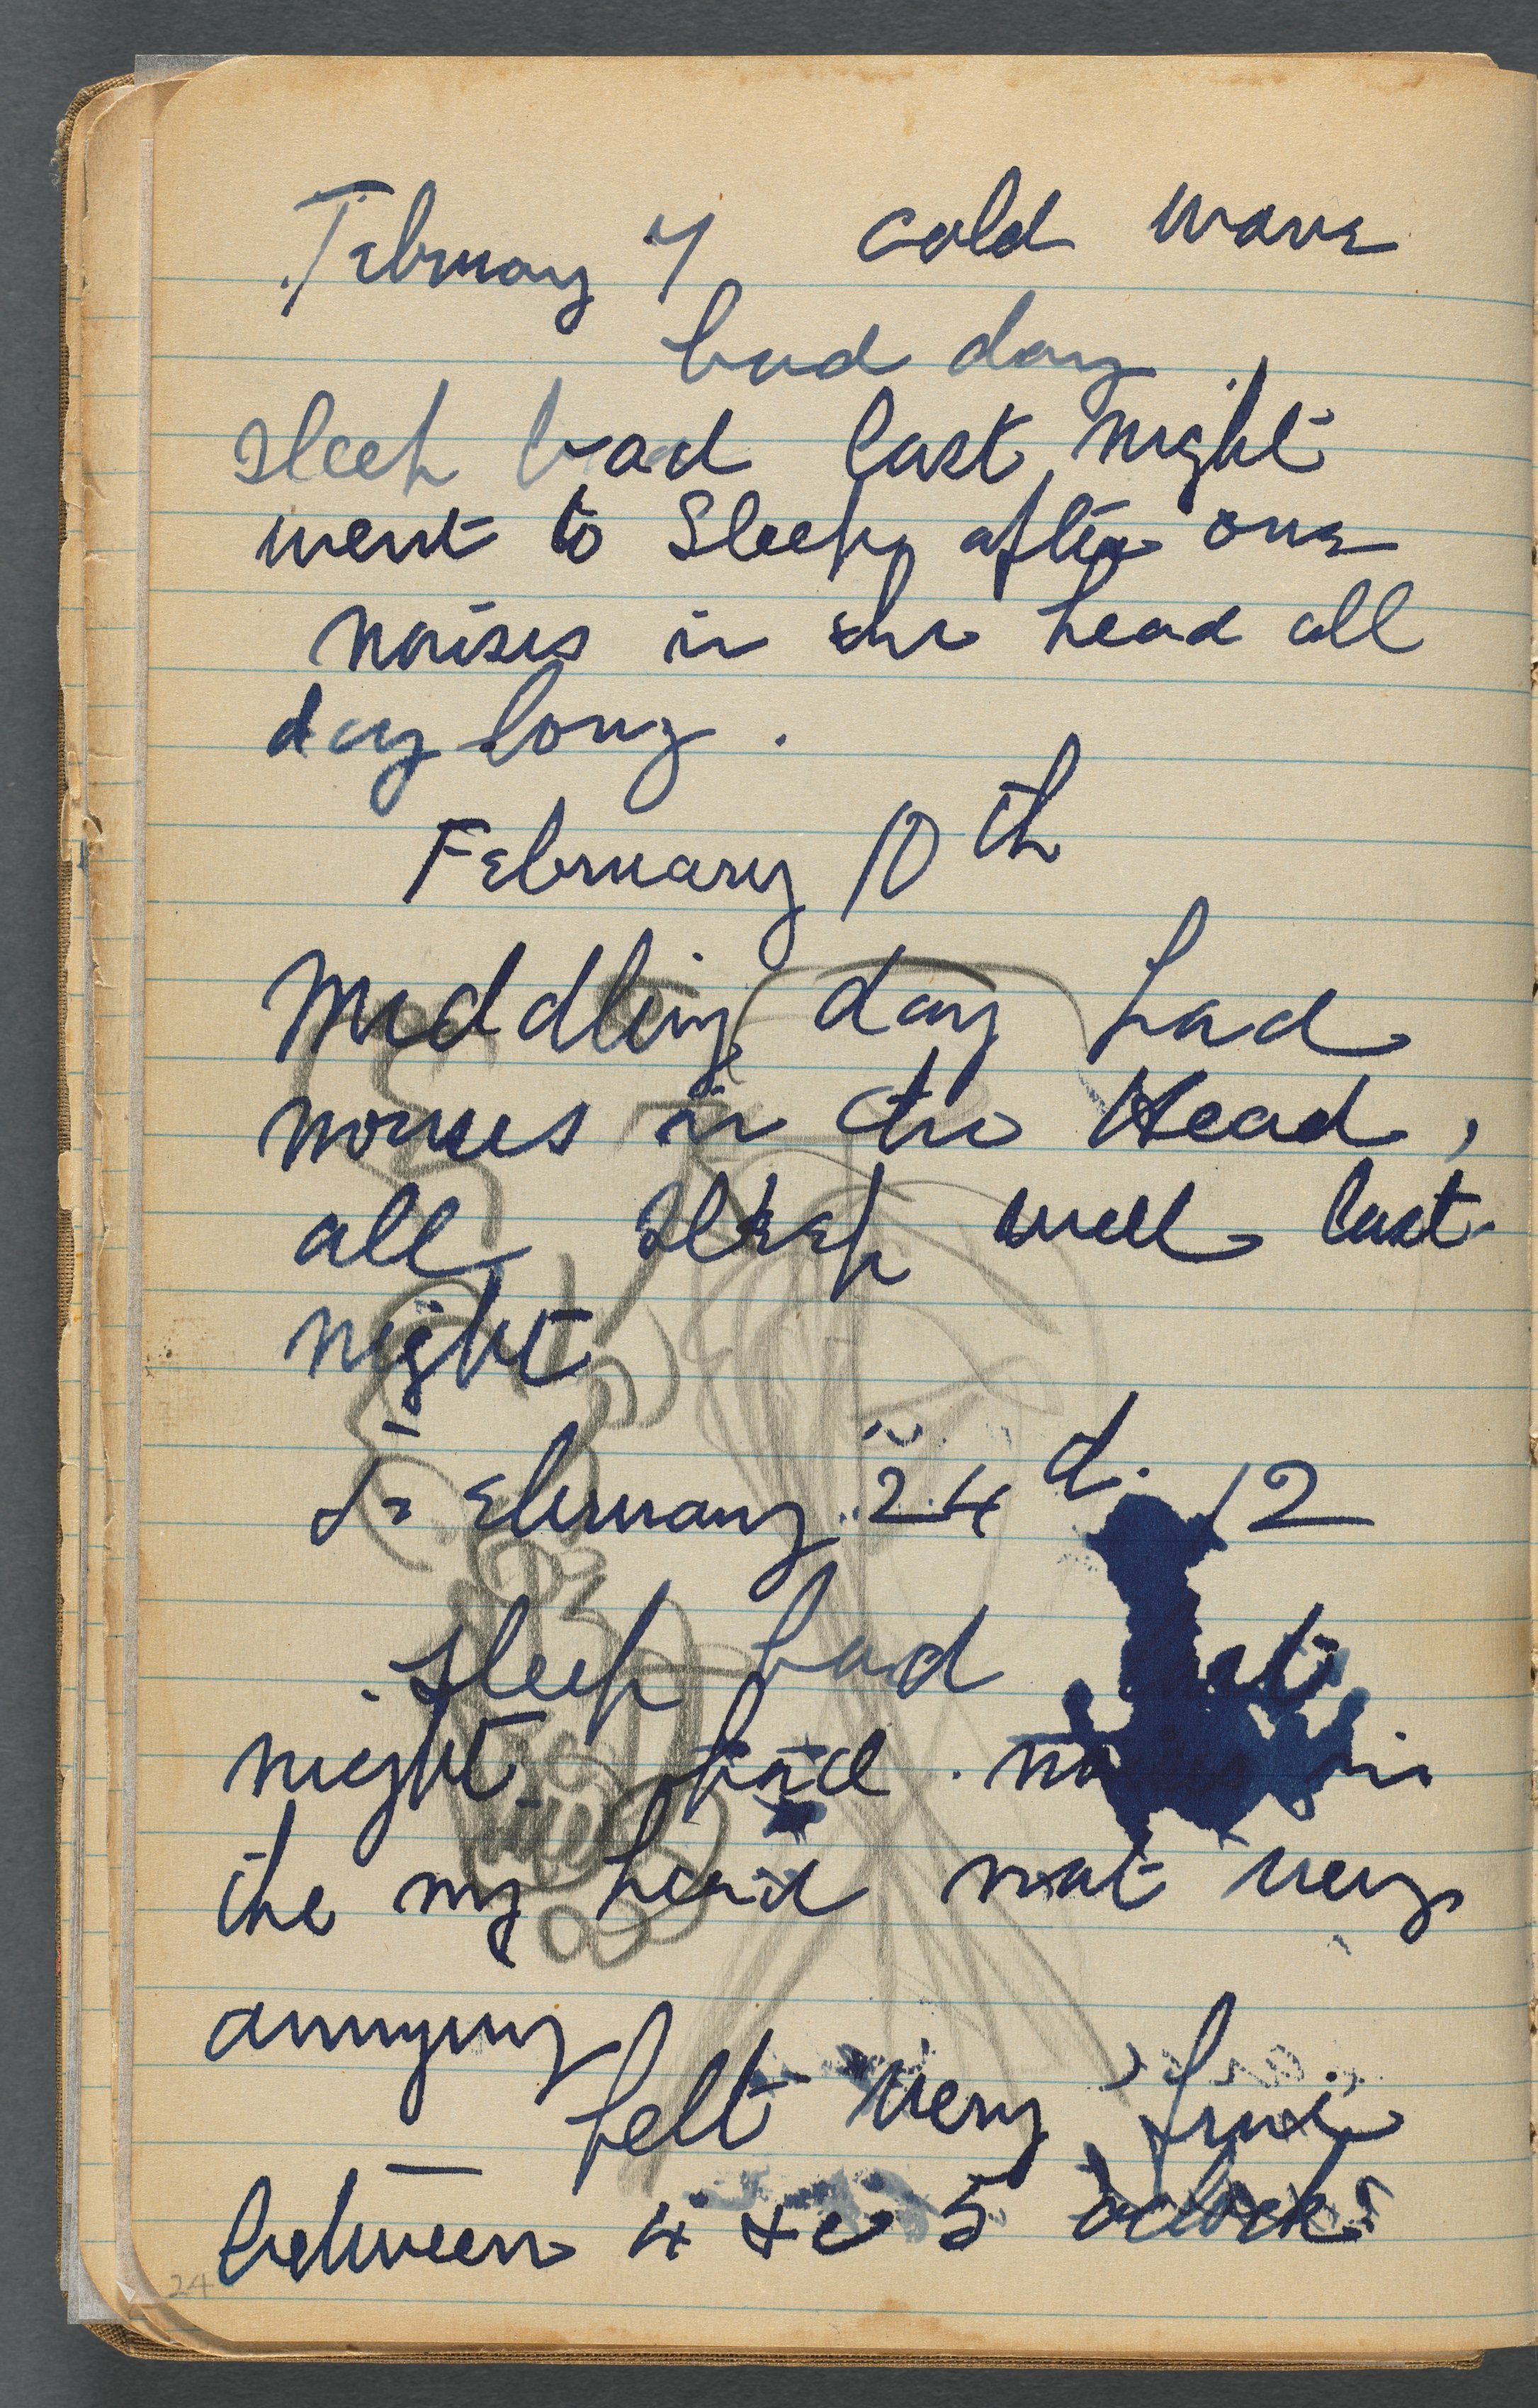 February 7 cold wave
bad day
sleep bad last night
went to Sleep after one
noises in the head all
day long.
February 10th
Middling day had
noises in the Head,
all sleep well last
night
February 24 d. 12
sleep bad last
night had noises in
the my head not very
annoying
felt very fine
between 4 & 5 oclock
24